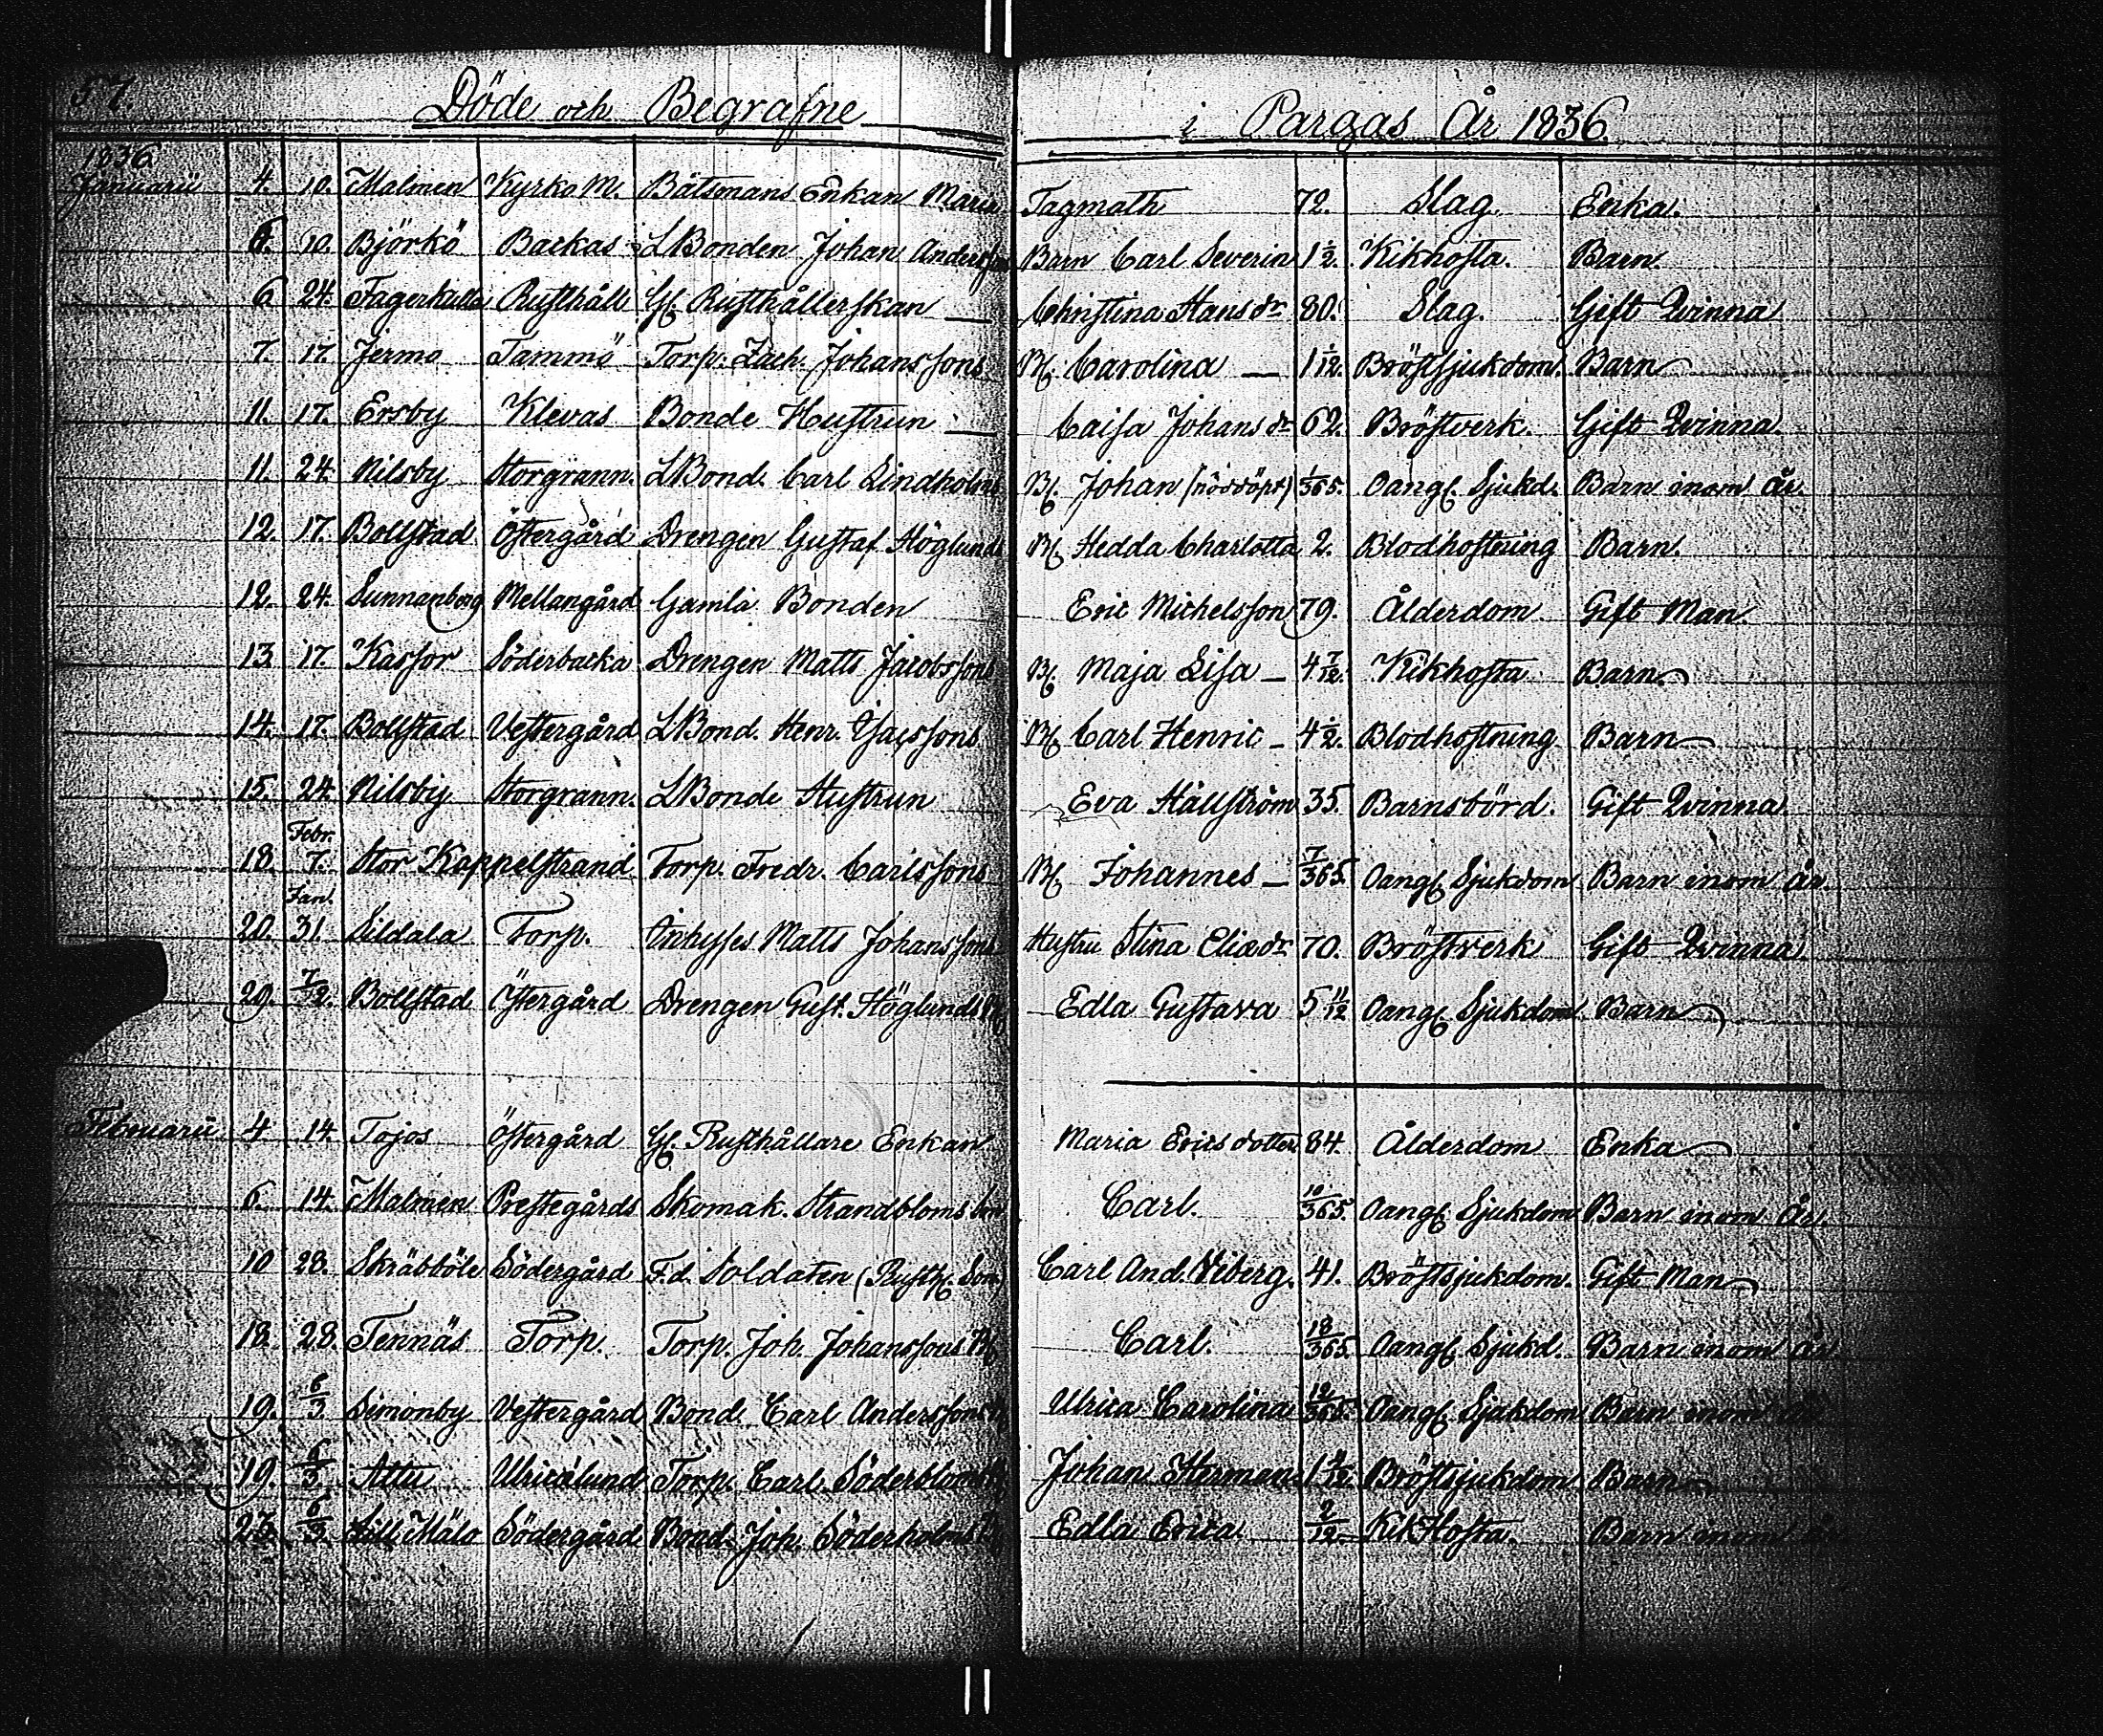 57.
Döde och Begrafne i Pargas År 1836.
1836
Januarii 4. 10. Malmen Kyrko M. Båtsmans Enkan Maria Tagmath 72. Slag. Enka.
6. 10. Björkö Backas LBonden Johan Anderssons Barn Carl Severin 1 1/2. Kikhosta. Barn.
6. 24. Fagerkulla Rusthåll Gl. Rusthållerskan — Christina Hansdr 80. Slag. Gift Qvinna
7. 17. Jermo Tammo Torp. Zach. Johanssons Bl. Carolina — 1 1/12. Bröstsjukdom. Barn
11. 17. Ersby Klevas Bonde Hustrun — Caisa Johansdr 62. Bröstverk. Gift Qvinna
11. 24. Nilsby Storgrann. LBond. Carl Lindholms Bl. Johan (nöddöpt) 1/365. Oangl. Sjukd. Barn inom år.
12. 17. Bollstad Östergård Drengen Gustaf Höglunds Bl. Hedda Charlotta 2. Blodhostning Barn.
12. 24. Sunnanberg Mellangård Gamla Bonden Eric Michelsson 79. Ålderdom Gift Man.
13 17. Kassor Söderbacka Drengen Matts Jacobssons Bl. Maja Lisa — 4 7/12. Kikhosta Barn.
14. 17. Bollstad Vestergård LBond. Henr. Isacssons Bl. Carl Henric — 4 1/2. Blodhostning Barn
15. 24. Nilsby Storgrann. LBonde Hustrun Eva Hällström 35. Barnsbörd. Gift Qvinna.
18. Febr. 7. Stor Kappelstrand Torp. Fredr. Carlssons Bl. Johannes — 7/365. Oangl. Sjukdom Barn inom År.
20. Jan. 31. Sildala Torp. Inhyses Matts Johanssons Hustru Stina Eliædr 70. Bröstverk Gift Qvinna
29. 7/2. Bollstad Östergård Drengen Gust. Höglunds Bl. Edla Gustava 5 11/12 Oangl. Sjukdom Barn
Februarii 4 14. Tojos Östergård Gl. Rusthållare Enkan Maria Ericsdotter 84. Ålderdom Enka
6. 14. Malmen Prestegårds Skomak. Strandbloms Son Carl. 10/365. Oangl. Sjukdom Barn inom År.
10 28. Skräbböle Södergård F.d. Soldaten (Rusth. Son) Carl And. Viberg. 41. Bröstsjukdom. Gift Man
18. 28. Tennäs Torp. Torp. Joh. Johanssons Bl. Carl. 18/365. Oangl. Sjukd. Barn inom År
19. 6/3. Simonby Vestergård Bond. Carl Anderssons Ulrica Carolina 12/365. Oangl. Sjukdom Barn inom år
19. 6/3. Attu Ulricalund Torp. Carl Söderbloms Johan Herman Bröstsjukdom Barn
6/3. Lill Mälo Södergård Bond. Joh. Söderholms Edla Erica 2/12. KikHosta. Barn inom år